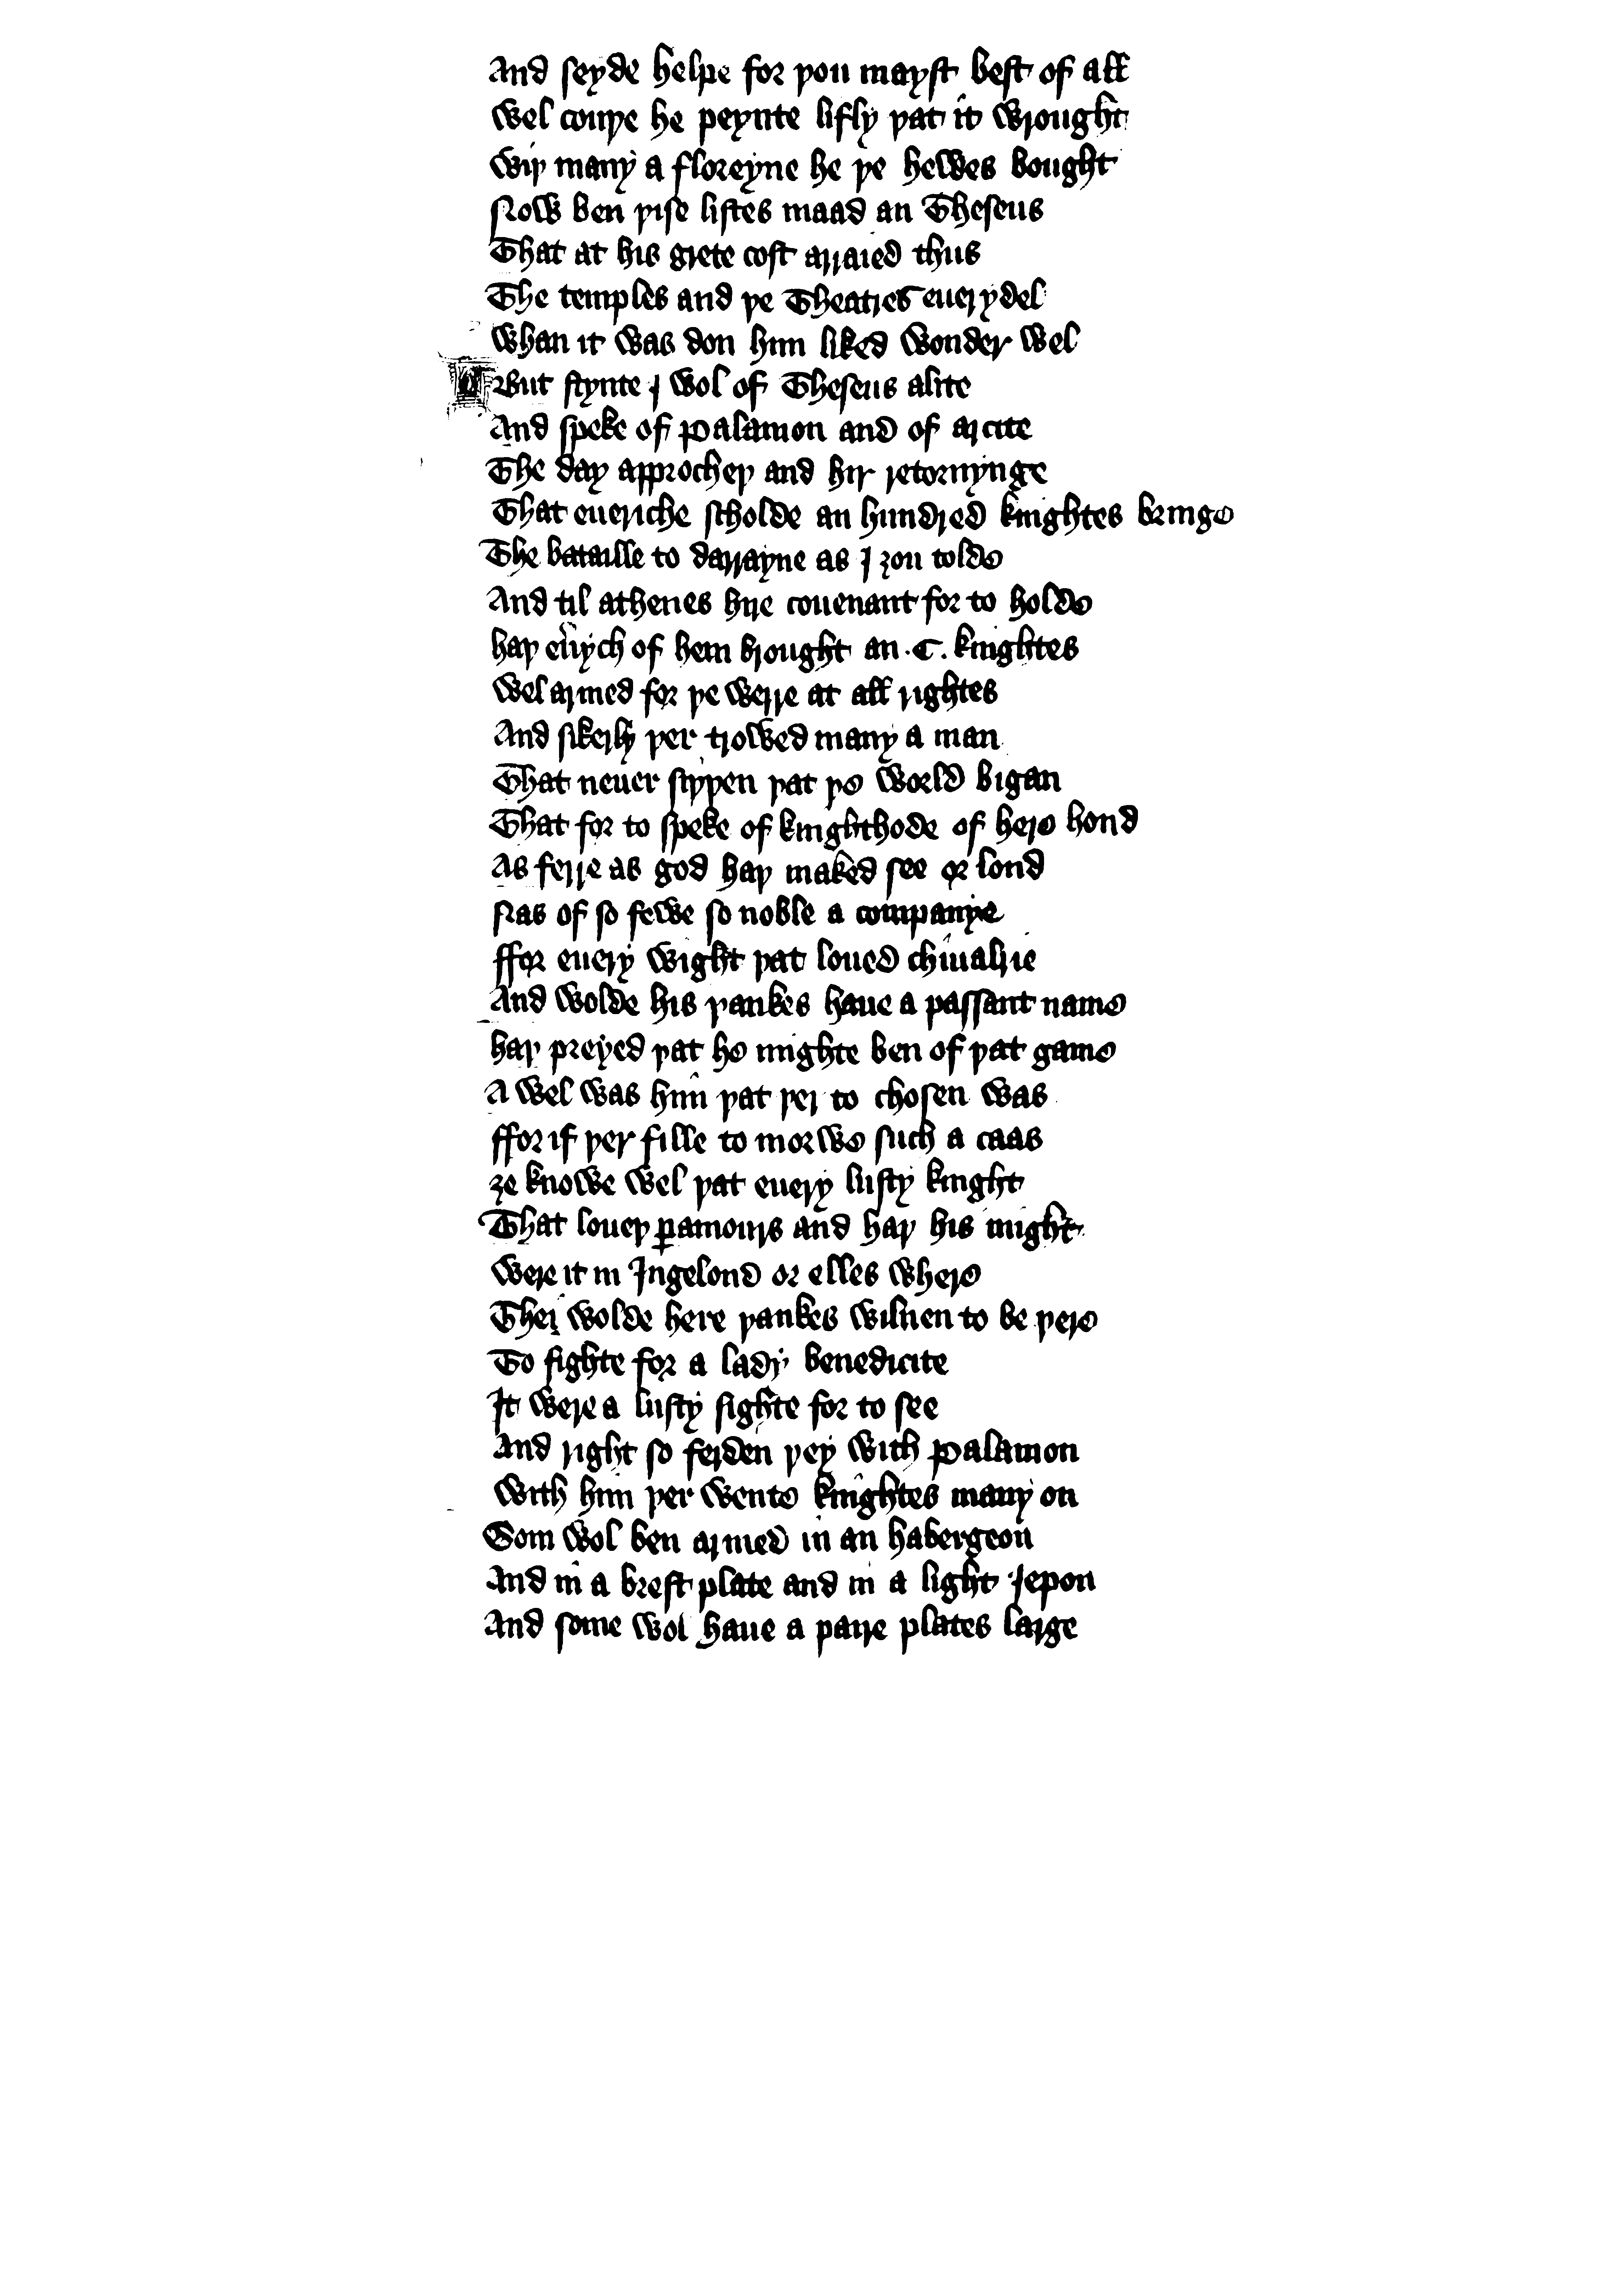 And seyde helpe for þou mayst best of all
Wel couþe he peynte lifly þat it wrought
Wiþ many a floreyne he þe hewes bought
Now ben þise listes maad an Theseus
That at his grete cost arraied thus
The temples and þe Theatres euery del
Whan it was don him liked wonder wel
¶ But stynte I wol of Theseus alite
And speke of Palamon and of arcite
The day approcheþ and hir retornynge
That eueriche scholde an hundred knightes bringe
The bataille to darrayne as I ȝou tolde
And til athenes hire couenant for to holde
haþ eu͛ych of hem brought an .C. knightes
Wel armed for þe werre at all rightes
And sikerly þer trowed many a man
That neuer syþþen þat þe world bigan
That for to speke of knighthode of here hond
As ferre as god haþ maked see or lond
Nas of so fewe so noble a companye
ffor euery wight þat loued chiualrie
And wolde his þankes haue a passant name
haþ preyed þat he mighte ben of þat game
A wel was him þat þer to chosen was
ffor if þer fille to morwe such a caas
ȝe knowe wel þat euery lusty knight
That loueþ ꝑamours and haþ his might
Were it in Ingelond or elles where
Thei wolde here þankes wilnen to be þere
To fighte for a lady benedicite
It were a lusty sighte for to see
And right so ferden þey with Palamon
With him þer wente knightes many on
Som wol ben armed in an habergeon
And in a brest plate and in a light Iepon
And some wol haue a paire plates large